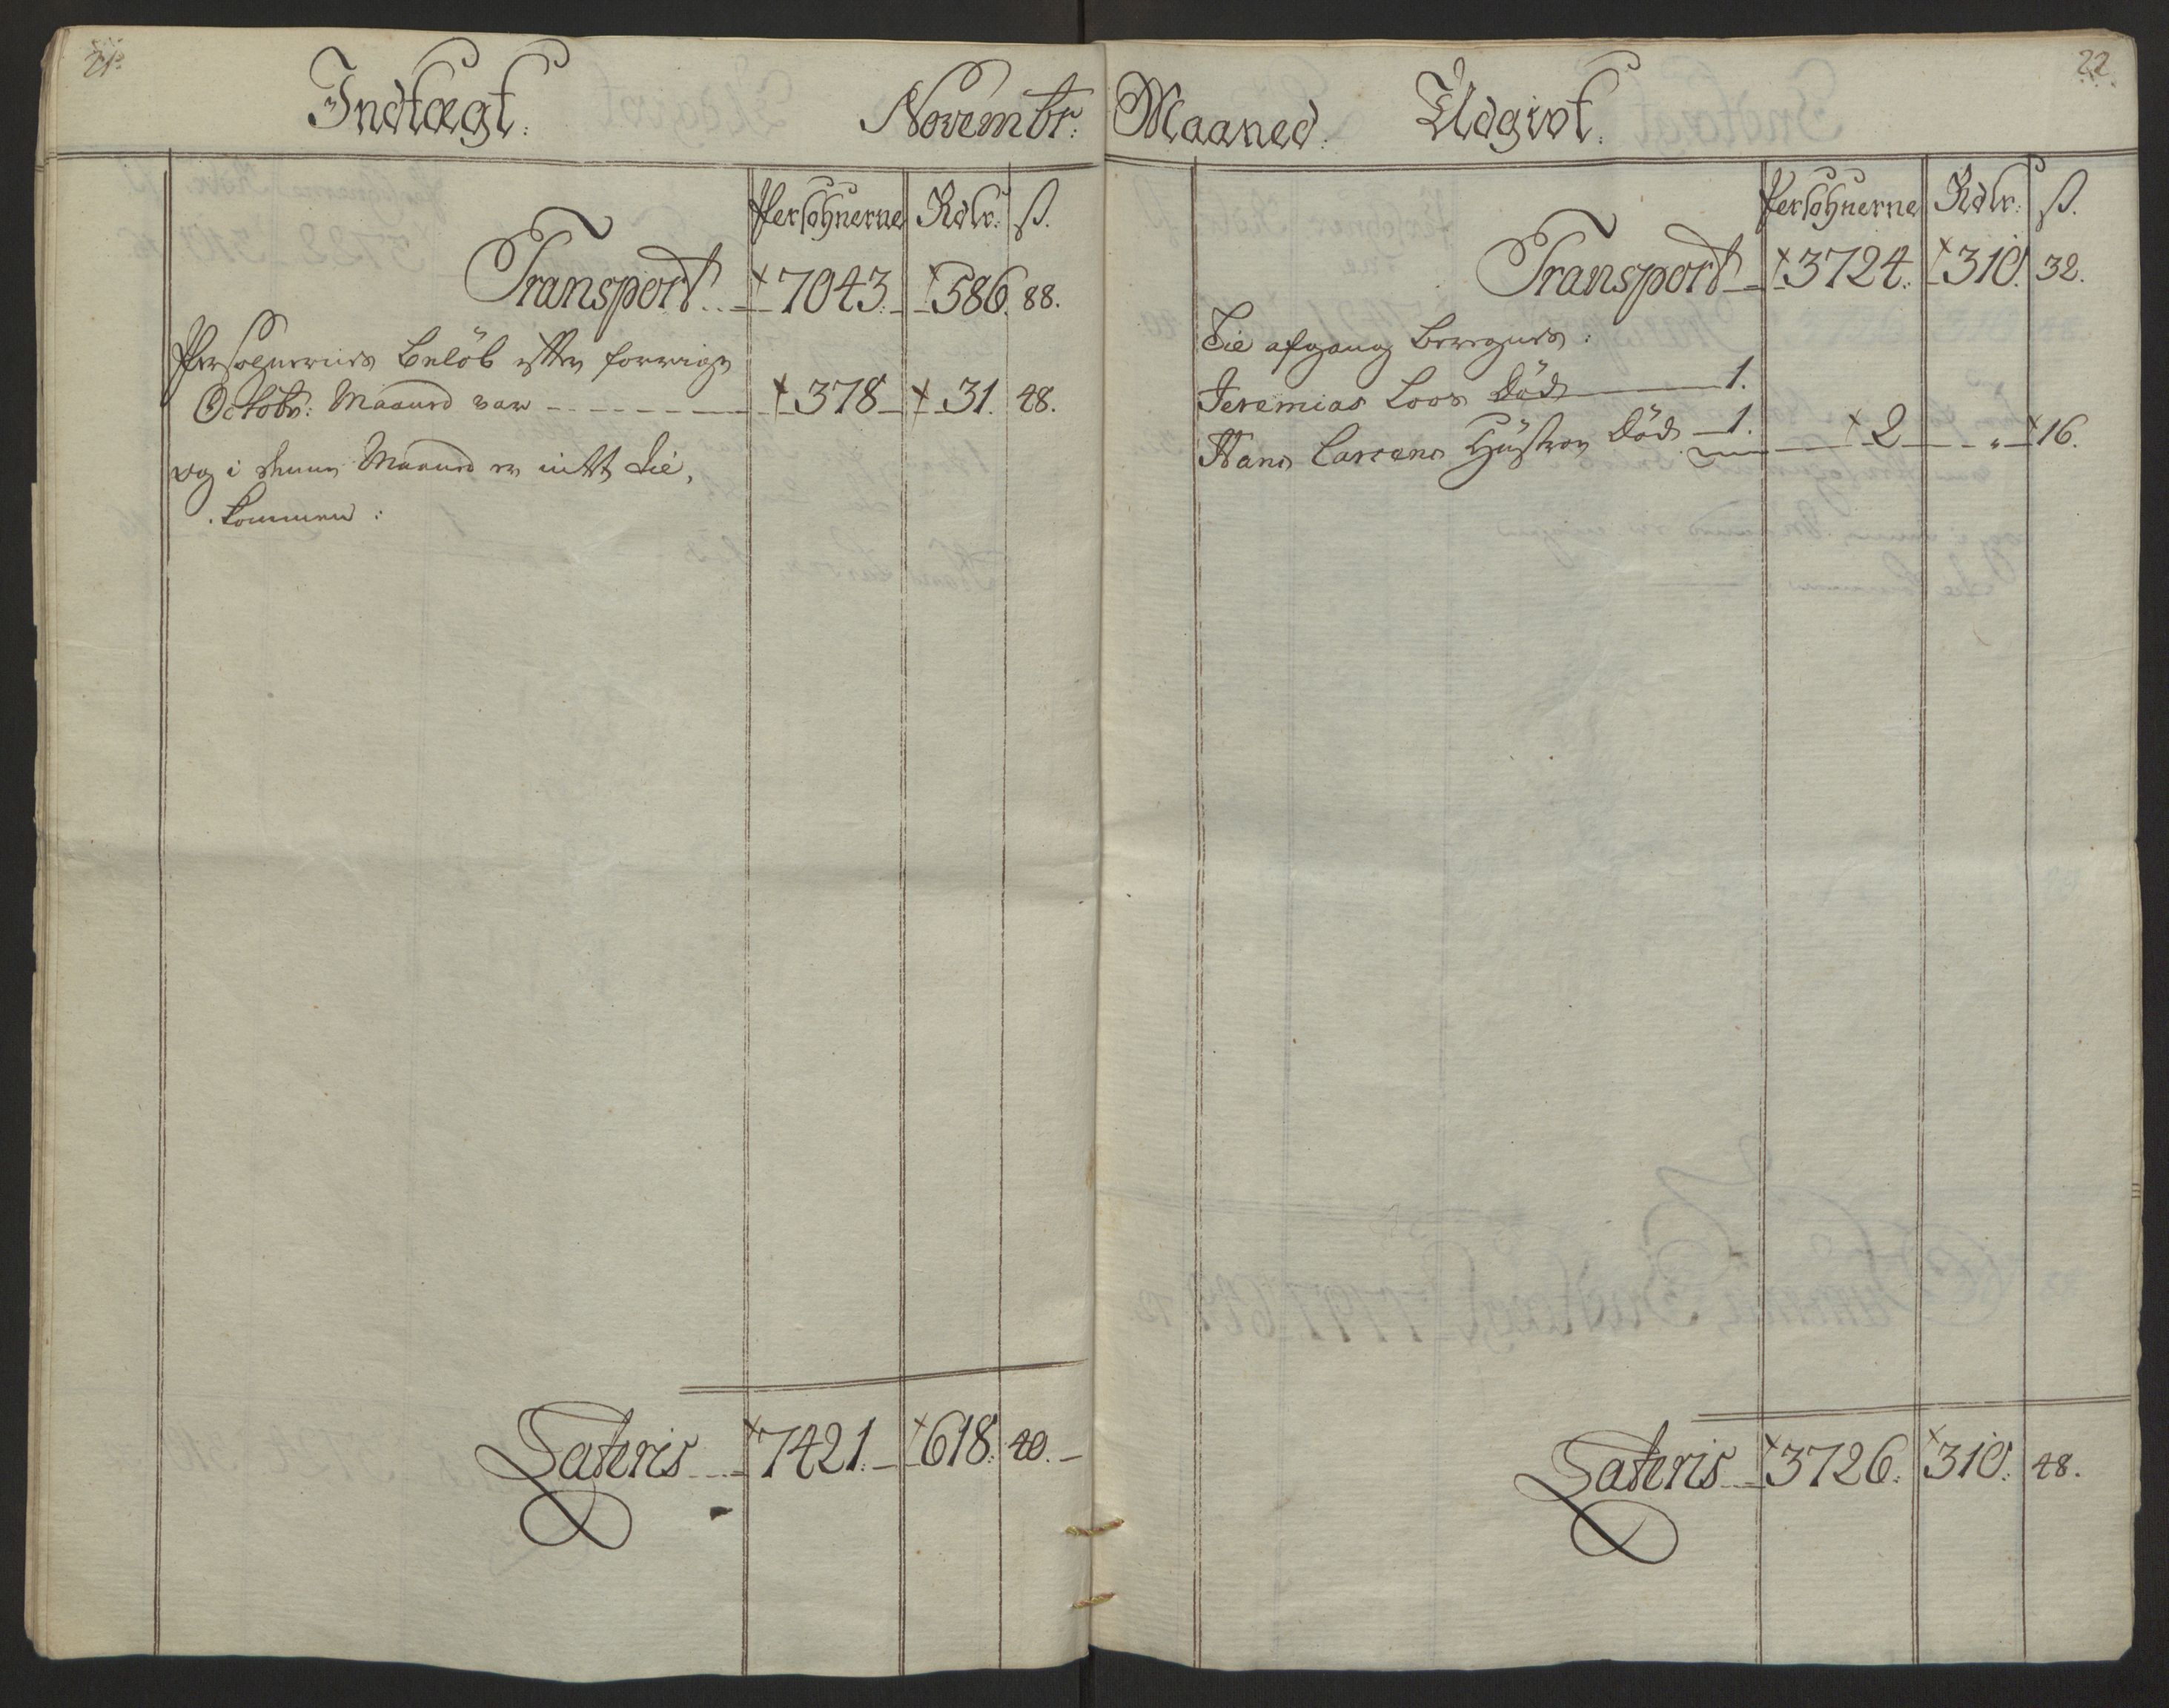 21.
Indtægt. Novembr:
Persohnerne Rdlr: ß.
Transport 7043. 586. 88.
Persohnernis Belöb efter forrige
Octobr: Maaned var 378 31. 48.
og i denne Maaned er intet til,
kommen:
Lateris 7421. 618. 40.
22.
Maaned. Udgivt.
Persohnerne Rdlr: ß.
Transport 3724. 310. 32.
Til afgang beregnes:
Jeremias Loos Död 1.
Hans Larsens Hüstrou Död 1. 2 " 16.
Lateris 3726. 310. 48.